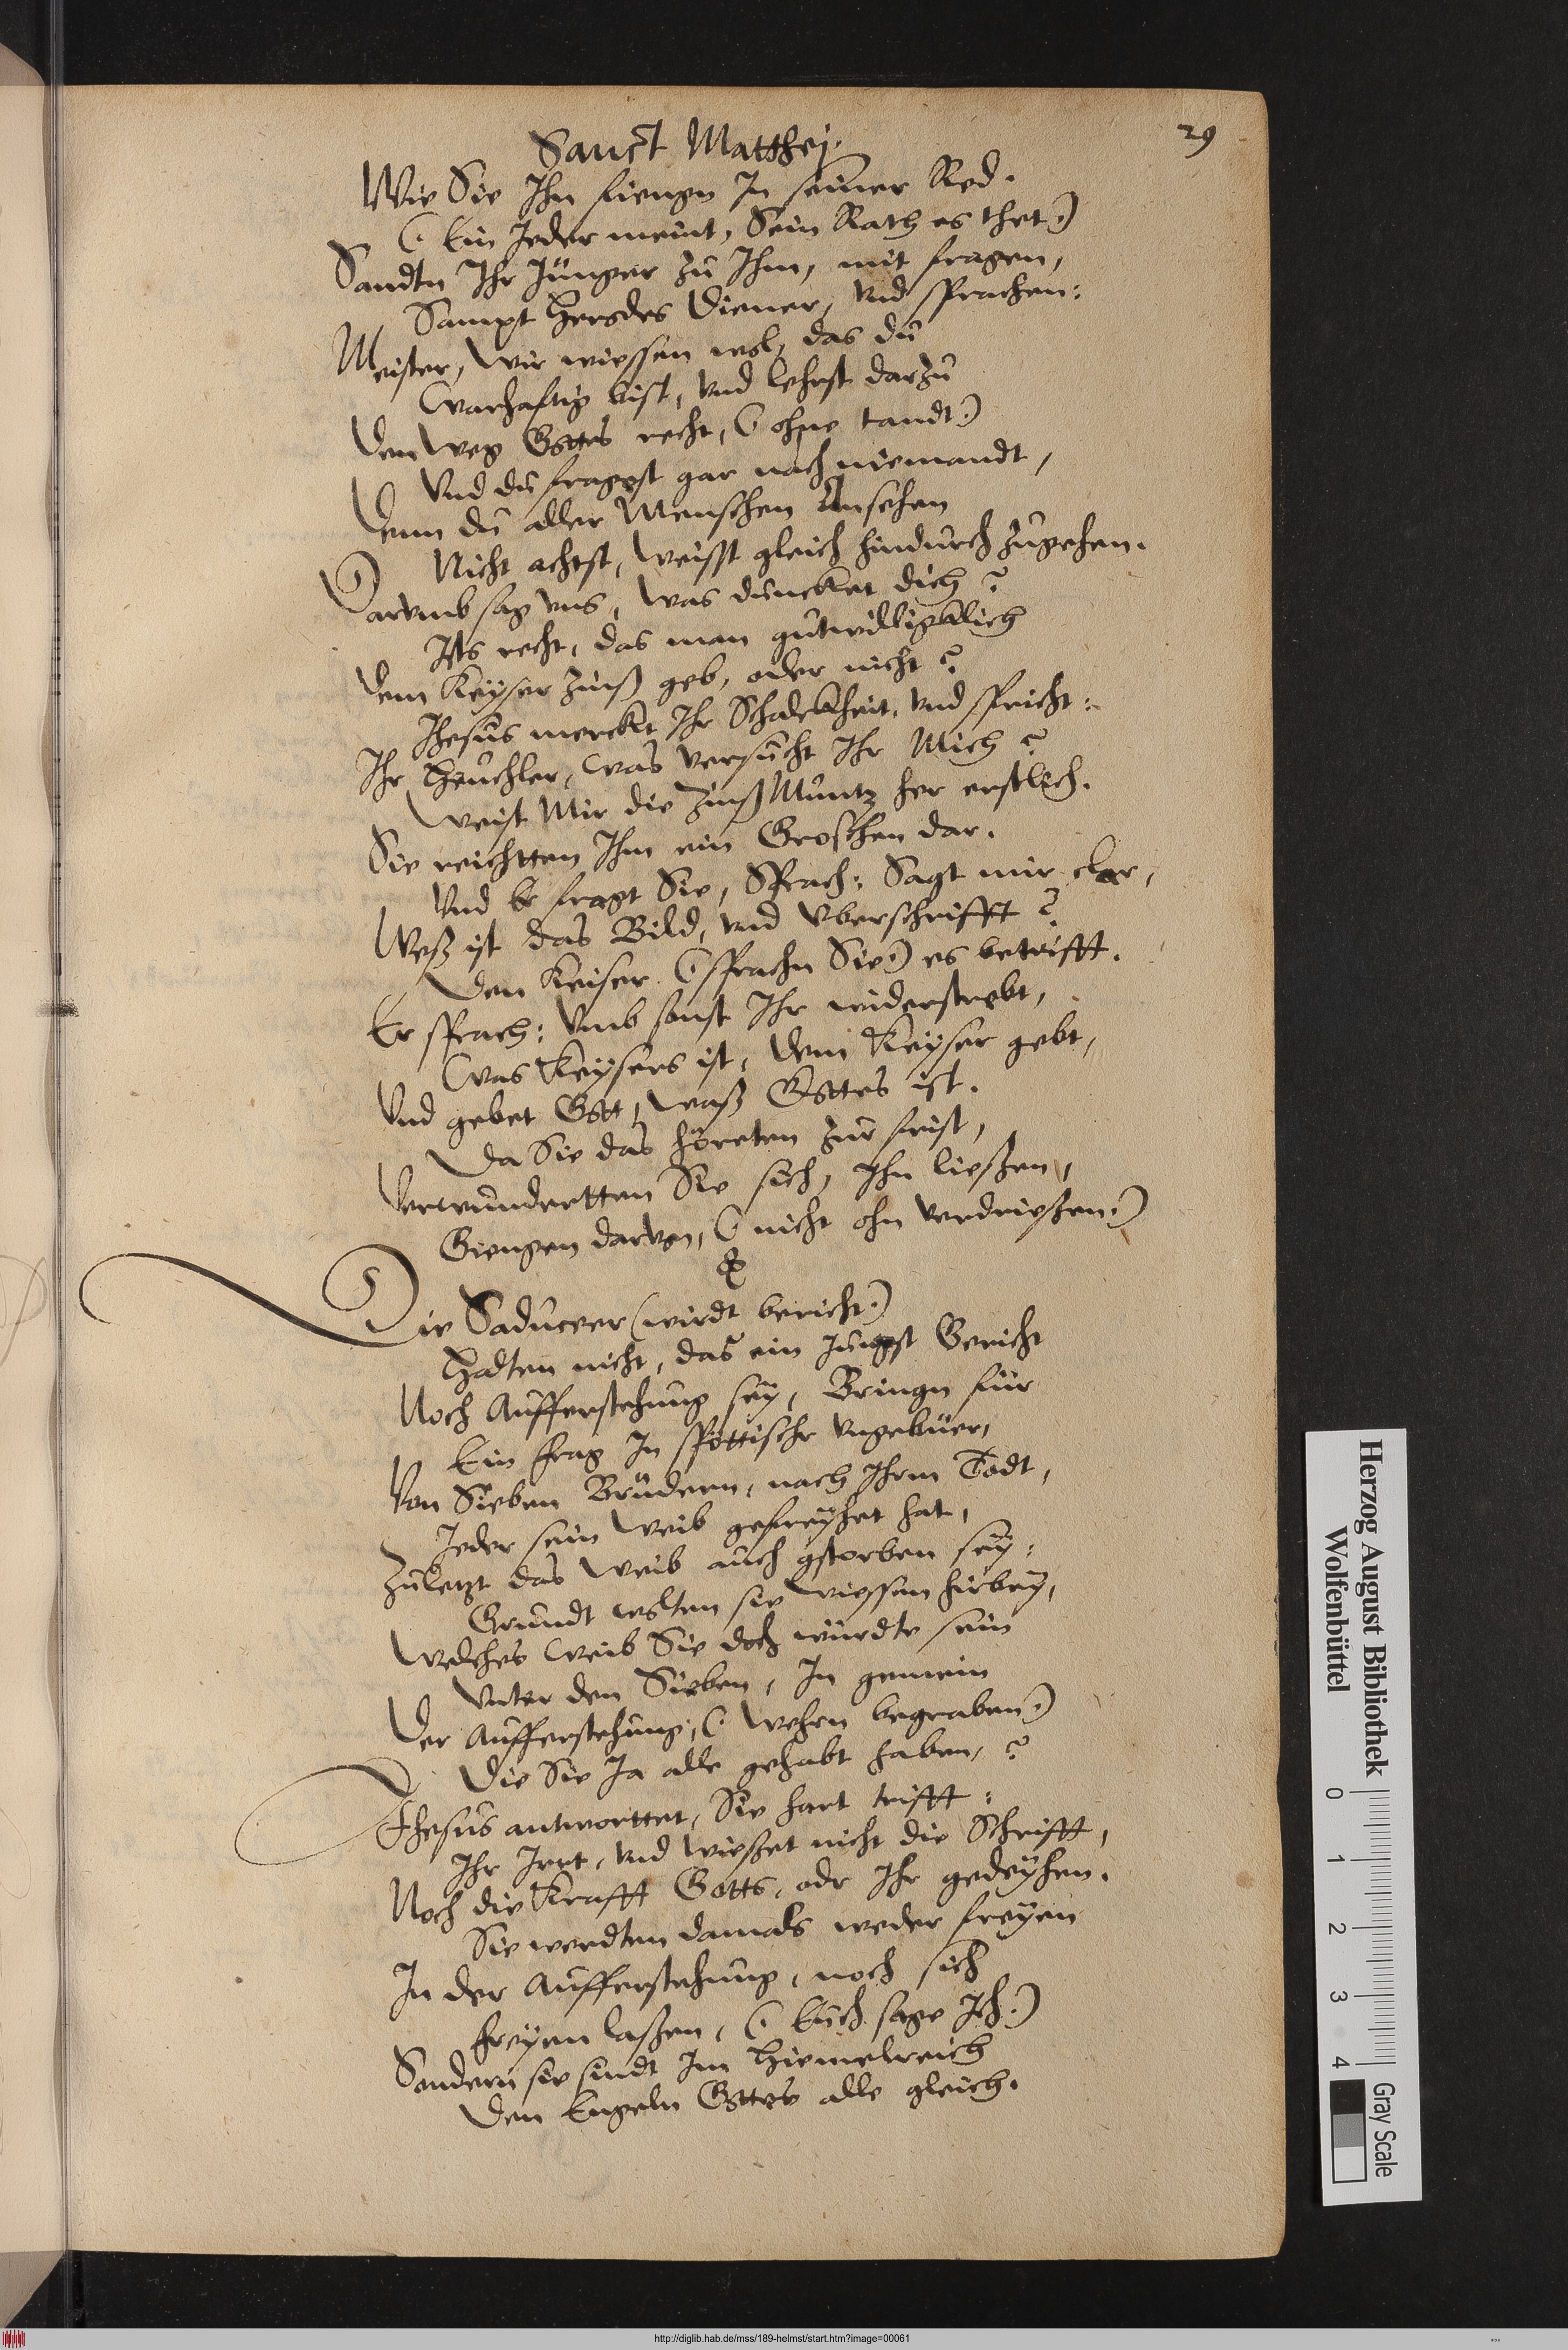 Sanct Matthej.
29
Wie Sie Ihn fiengn In seiner Red.
(Ein Jeder meint, Sein Rath es thet)
Sandtn Ihr Jünger zu Ihm, mit fragen,
Sampt Herodes Diener, vnd sprachen:
Meister, Wir wiessen wol, das du
Warhafftig bist, vnd lehrst darzu
Den Weg Gottes recht, (ohne tandt)
Vnd du fragest gar nach niemandt,
Denn du aller Menschen Ansehen
Nicht achtst, Weisst gleich hindurch zugehen.
Darumb sag vns, Was dunckket dich?
Ists recht, das man gutwilligklich
Dem Keyser Zinß geb, oder nicht?
Jhesus merckt Ihr Schalckheit, vnd spricht:
Ihr Heuchler, Was versucht Ihr Mich?
Weist Mir die Zinß Müntz her erstlich.
Sie reichtten Ihm ein Groschen dar.
Vnd Er fragt Sie, Sprach: Sagt mir clar,
Weß ist das Bild, vnd Vberschrifft?
Den Keiser (sprachn Sie) es betrifft.
Er sprach: Vmb sonst Ihr widerstrebt,
Was Keysers ist, dem Keyser gebt,
Vnd gebet Gott, waß Gottes ist.
Da Sie das höreten zur frist,
Verwundertten Sie sich, Ihn ließen,
Giengen darvon, (nicht ohn verdrießen)
Die Saduceer (wirdt bericht)
Haltten nicht, das ein Jungst Gericht
Noch Aufferstehung sey, Bringn für
Ein frag In spöttischr vngebüer,
Von Sieben Brüdern, nach Ihrm Todt,
Jeder sein Weib gefreyhet hat,
Zuletzt das Weib auch gstorben sey:
Grundt wolten sie wiessen hirbey,
Welches Weib Sie doch würdte sein
Vnter den Sieben, In gemein
Der Aufferstehung, (Wehrn begraben)
Die Sie Ja alle gehabt haben,?
Jhesus antworttet, Sie hart trifft:
Ihr Irrt, vnd Wießet nicht die Schrifft,
Noch die Krafft Gotts, odr Ihr gedeyhen.
Sie werdten damals weder freyen
In der Aufferstehung, noch sich
freyen laßen, (Euch sage Ich)
Sondern sie sindt Im Hiemelreich
Den Engeln Gottes alle gleich.
Herzog August Bibliothek
Wolfenbüttel
0 1 2 3 4
Gray Scale
http://diglib.hab.de/mss/189-helmst/start.htm?image=00061